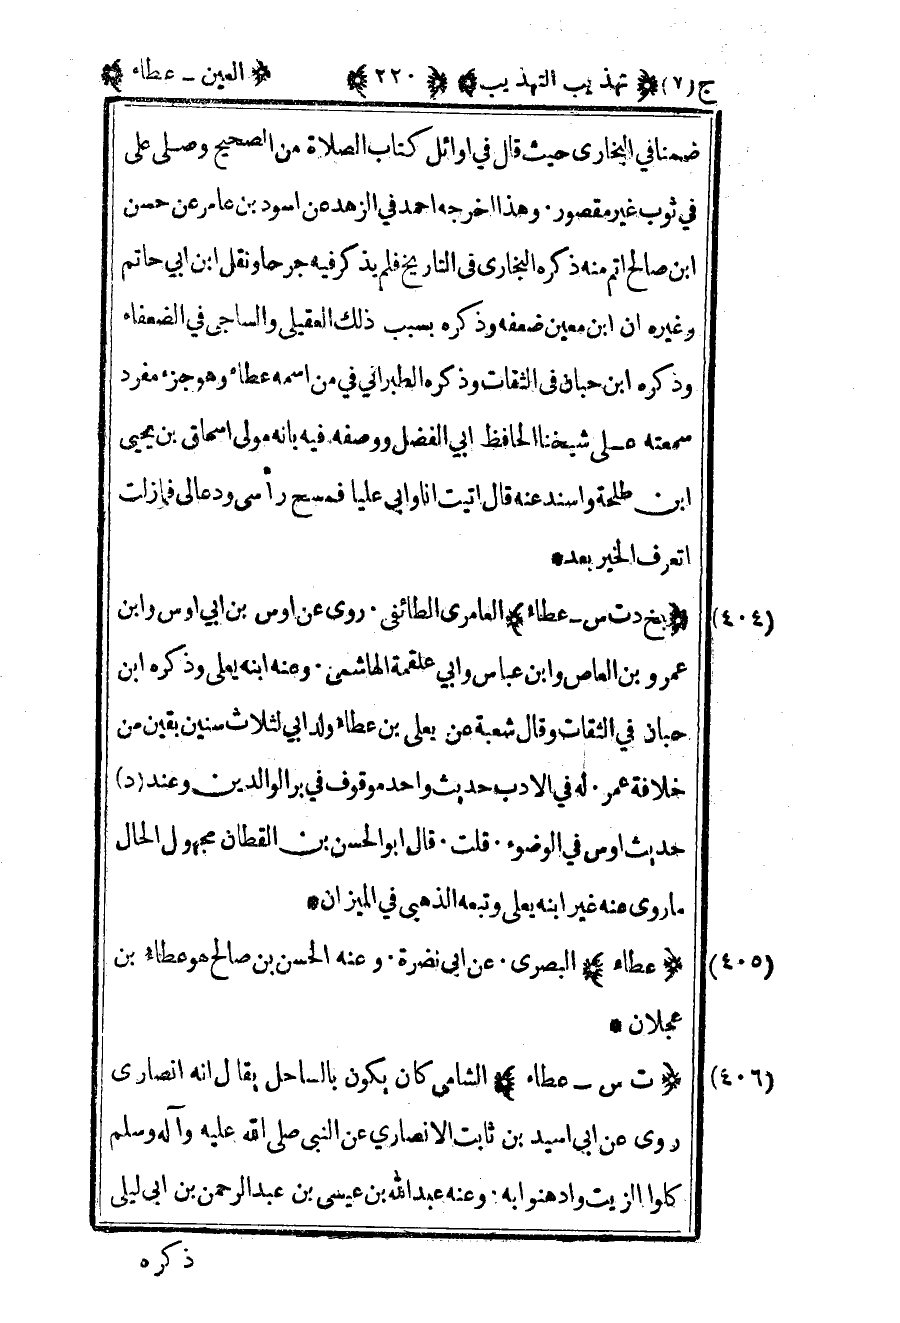 ج (٧) ﴿ تهذيب التهذيب ﴾ ﴿ ٢٢٠ ﴾ ﴿ العين ـ عطاء ﴾
ضمنا في البخارى حيث قال في اوائل كتاب الصلاة من الصحيح وصلى على
في ثوب غير مقصور · وهذا اخرجه احمد في الزهد عن اسود بن عامر عن حسن
ابن صالح اتم منه ذكره البخارى فى التاريخ فلم يذكر فيه جرحا ونقل ابن ابي حاتم
وغيره ان ابن معين ضعفه وذكره بسبب ذلك العقيلي والساجي في الضعفاء
وذكره ابن حبان فى الثقات وذكره الطبراني في من اسمه عطاء وهو جزء مفرد
سمعته عـلى شيخنا الحافظ ابي الفضل ووصفه فيه بانه مولى اسحاق بن يحيى
ابن طلحة واسند عنه قال اتيت انا وابي عليا فمسح رأسى ودعا لى فما زلت
اتعرف الخير بعد *
(٤٠٤) ﴿ بخ د ت س ـ عطاء ﴾ العامرى الطائفي · روى عن اوس بن ابي اوس وابن
عمرو بن العاص وابن عباس وابي علقمة الهاشمي · وعنه ابنه يعلى وذكره ابن
حبان في الثقات وقال شعبة عن يعلى بن عطاء ولد ابي لثلاث سنين بقين من
خلافة عمر · له في الادب حديث واحد موقوف في بر الوالدين وعند (د)
حديث اوس في الوضوء · قلت · قال ابو الحسن بن القطان مجهول الحال
ما روى عنه غير ابنه يعلى وتبعه الذهبي في الميزان *
(٤٠٥) ﴿ عطاء ﴾ البصرى · عن ابي نضرة · وعنه الحسن بن صالح هو عطاء بن
عجلان *
(٤٠٦) ﴿ ت س ـ عطاء ﴾ الشامي كان يكون بالساحل يقال انه انصارى
روى عن ابي اسيد بن ثابت الانصاري عن النبي صلى الله عليه وآله وسلم
كلوا الزيت وادهنوا به · وعنه عبد الله بن عيسى بن عبد الرحمن بن ابي ليلى
ذكره